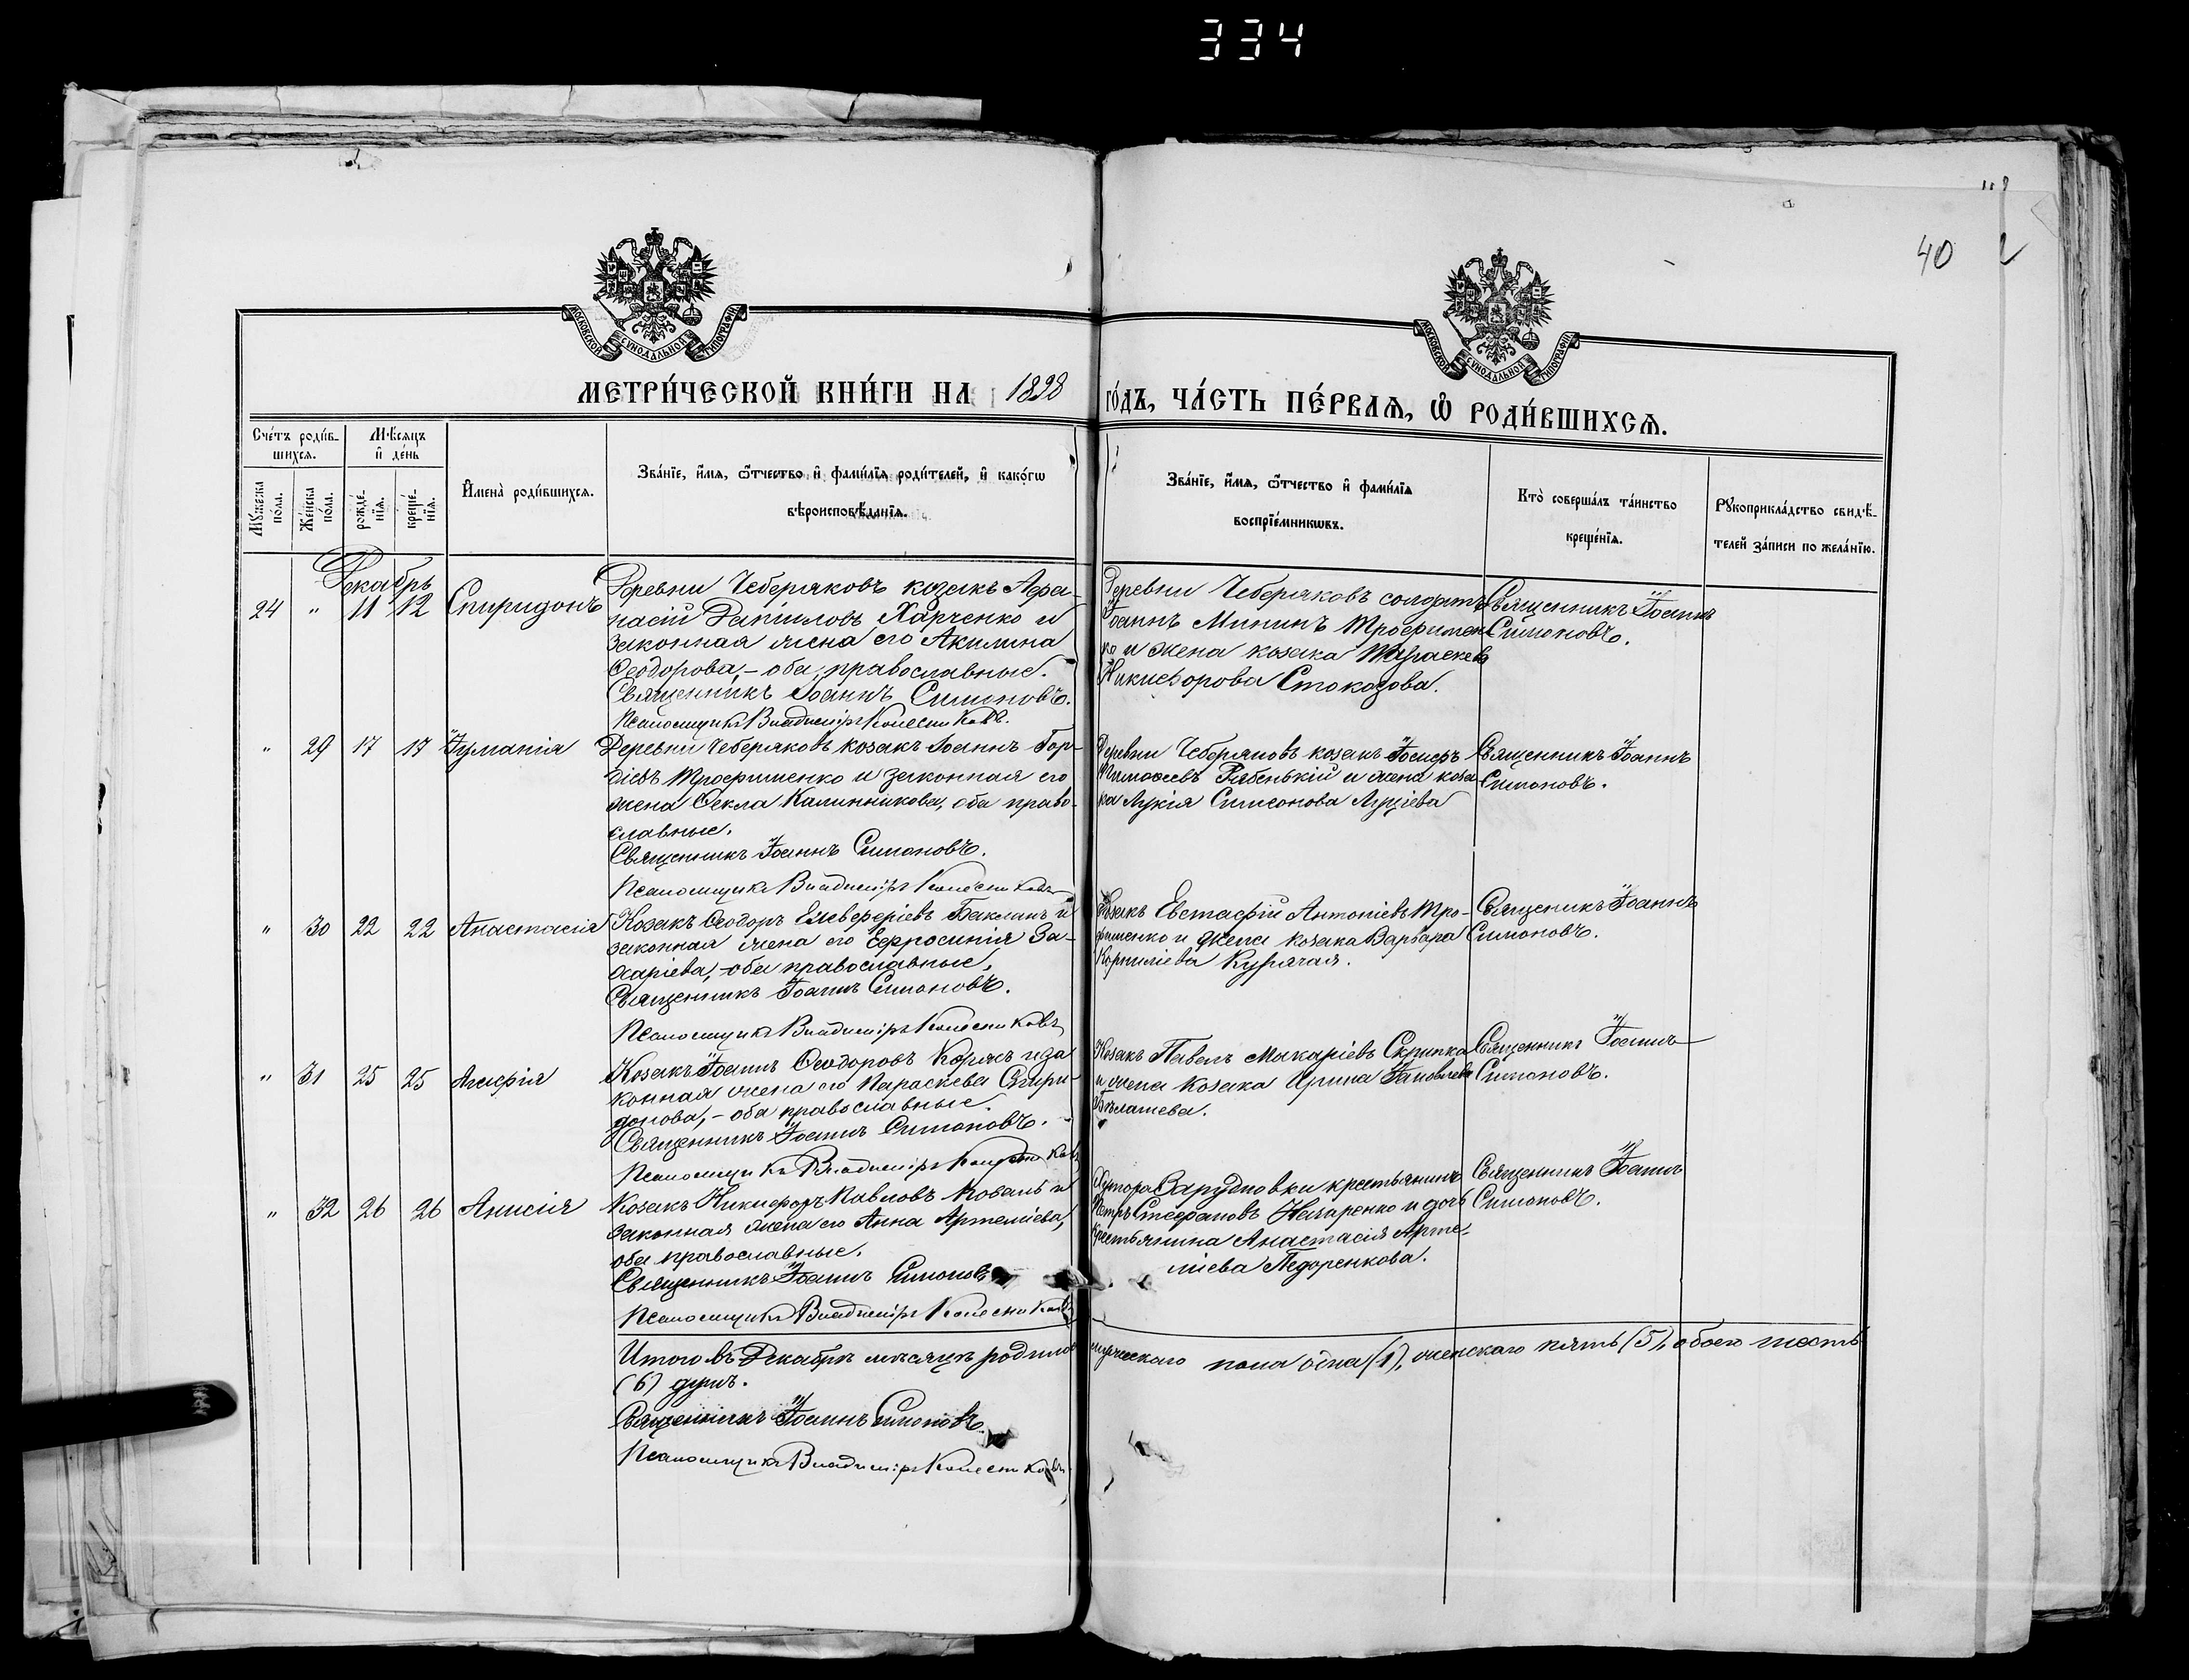 334
40
МОСКОВСКОЙ СѴНОДАЛЬНОЙ ТИПОГРАФІИ
МОСКОВСКОЙ СѴНОДАЛЬНОЙ ТИПОГРАФІИ
МЕТРИ́ЧЕСКОЙ КНИ́ГИ НА 1898 ГО́ДЪ, ЧА́СТЬ ПЕ́РВАѦ, Ѡ҆ РОДИ́ВШИХСѦ.
Сче́тъ роди́в-
шихсѧ.
Мѣ́сѧцъ
и҆ де́нь
Мꙋ́жеска
по́ла.
Же́нска
по́ла.
рожде́-
нїѧ.
креще́-
нїѧ.
И҆мена̀ роди́вшихсѧ.
Зва́нїе, и҆́мѧ, ѻ҆́тчество и҆ фами́лїѧ роди́телей, и҆ како́гѡ
вѣроисповѣ́данїѧ.
Зва́нїе, и҆́мѧ, ѻ҆́тчество и҆ фами́лїѧ
воспрїе́мникѡвъ.
Кто̀ соверша́лъ та́инство
креще́нїѧ.
Рꙋкоприкла́дство свидѣ́-
телей за́писи по жела́нїю.
Декабрь
24 " 11 12 Спиридонъ
Деревни Чеберяковъ козакъ Афа-
насій Даніиловъ Харченко и
законная жена его Акилина
Ѳеодорова,- оба православные.
Священникъ Іоаннъ Симоновъ.
Псаломщикъ Владиміръ Колесниковъ.
Деревни Чеберяковъ солдатъ
Іоаннъ Мининъ Трофимен-
ко и жена козака Параскева
Никифорова Стоколова.
Священникъ Іоаннъ
Симоновъ.
" 29 17 17 Іуліанія
Деревни Чеберяковъ козакъ Іоаннъ Гор-
діевъ Трофименко и законная его
жена Ѳекла Калинникова, оба право-
славные.
Священникъ Іоаннъ Симоновъ.
Псаломщикъ Владиміръ Колесниковъ
Деревни Чеберяковъ козакъ Іосифъ
Тимоѳеевъ Рябенькій и жена коза-
ка Лукія Симеонова
Священникъ Іоаннъ
Симоновъ.
" 30 22 22 Анастасія
Козакъ Ѳеодоръ Елевферіевъ Бакланъ и
законная жена его Ефросинія За-
харіева,-оба православные.
Священникъ Іоаннъ Симоновъ.
Псаломщикъ Владиміръ Колесниковъ
Козакъ Евстафій Антоніевъ Тро-
фименко и жена козака Варвара
Корниліева Курячая.
Священникъ Іоаннъ
Симоновъ.
" 31 25 25 Агафія
Козакъ Іоаннъ Ѳеодоровъ Коржъ и за
конная жена его Параскева Спири-
донова,- оба православные.
Священникъ Іоаннъ Симоновъ.
Псаломщикъ Владиміръ Колесниковъ
Козакъ Павелъ Макаріевъ Скрипка
и жена козака Ирина Іаковлева
Священникъ Іоаннъ
Симоновъ.
" 32 26 26 Анисія
Козакъ Никифоръ Павловъ Коваль и
законная жена его Анна Артеміева,
оба православные.
Священникъ Іоаннъ Симоновъ
Псаломщикъ Владиміръ Колесниковъ
Хутора Зарудновки крестьянинъ
Петръ Стефановъ Назаренко и дочь
крестьянина Анастасія Арте-
міева Педоренкова.
Священникъ Іоаннъ
Симоновъ.
Итого въ Декабрѣ мѣсяцѣ родилось мужескаго пола одна (1), женскаго пять (5), обоего шесть
(6) душъ.
Священникъ Іоаннъ Симоновъ.
Псаломщикъ Владиміръ Колесниковъ